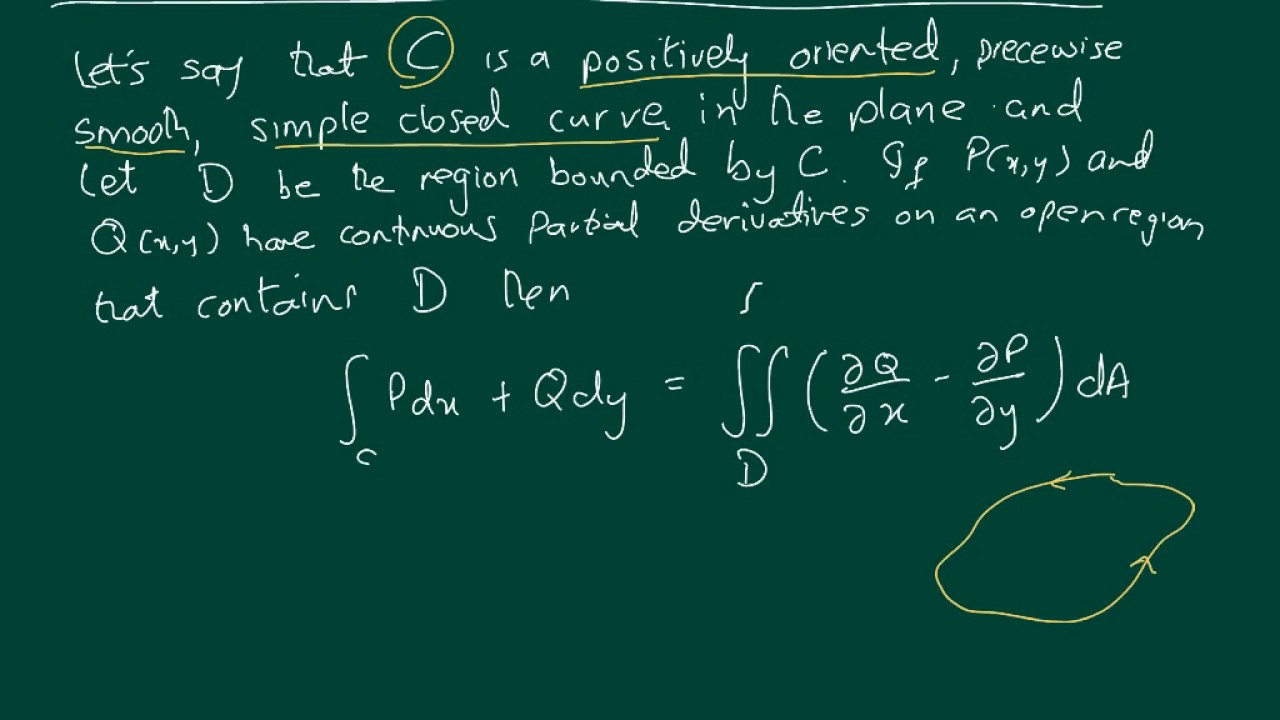 Let's say that C is a positively oriented, piecewise
smooth, simple closed curve in the plane and
let D be the region bounded by C. If P(x,y) and
Q(x,y) have continuous partial derivatives on an open region
that contains D then
∫_C Pdx + Qdy = ∬_D (∂Q/∂x - ∂P/∂y) dA